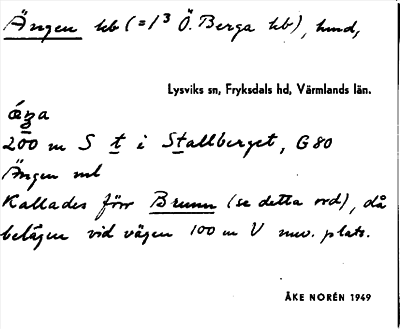 Ängen hb (=1³ Ö. Berga hb), hmd,
Lysviks sn, Fryksdals hd, Värmlands län.
200 m S t i Stallberget, G80
Ängen ml
Kallades förr Brunn (se detta ord), då
belägen vid vägen 100 m V nuv. plats.
ÅKE NORÉN 1949